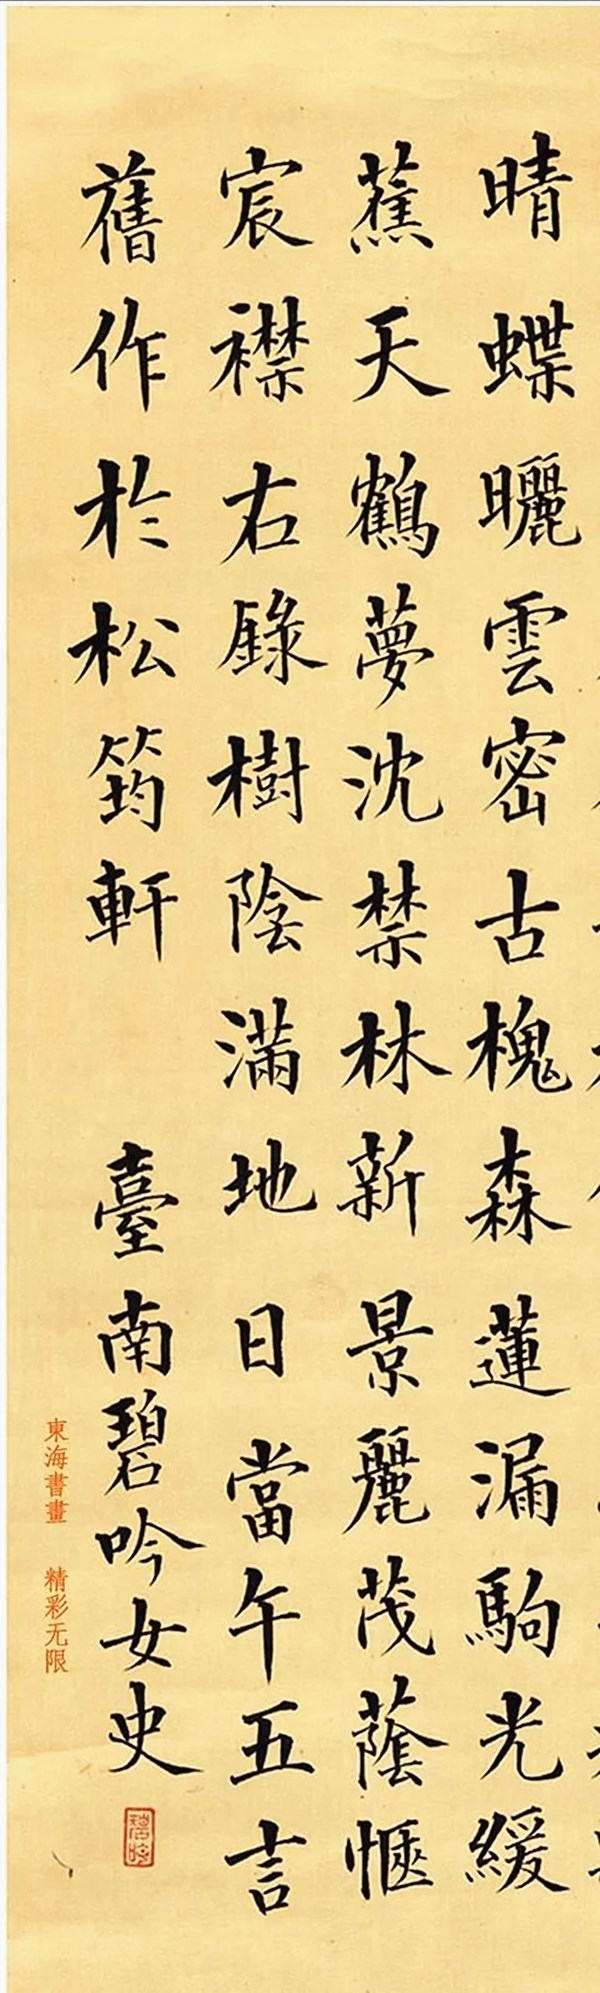 晴蝶曬雲密古槐森蓮漏駒光緩
蕉天鶴夢沈禁林新景麗茂蔭愜
宸襟右錄樹陰滿地日當午五言
舊作於松筠軒 臺南碧吟女史
東海書畫 精彩无限